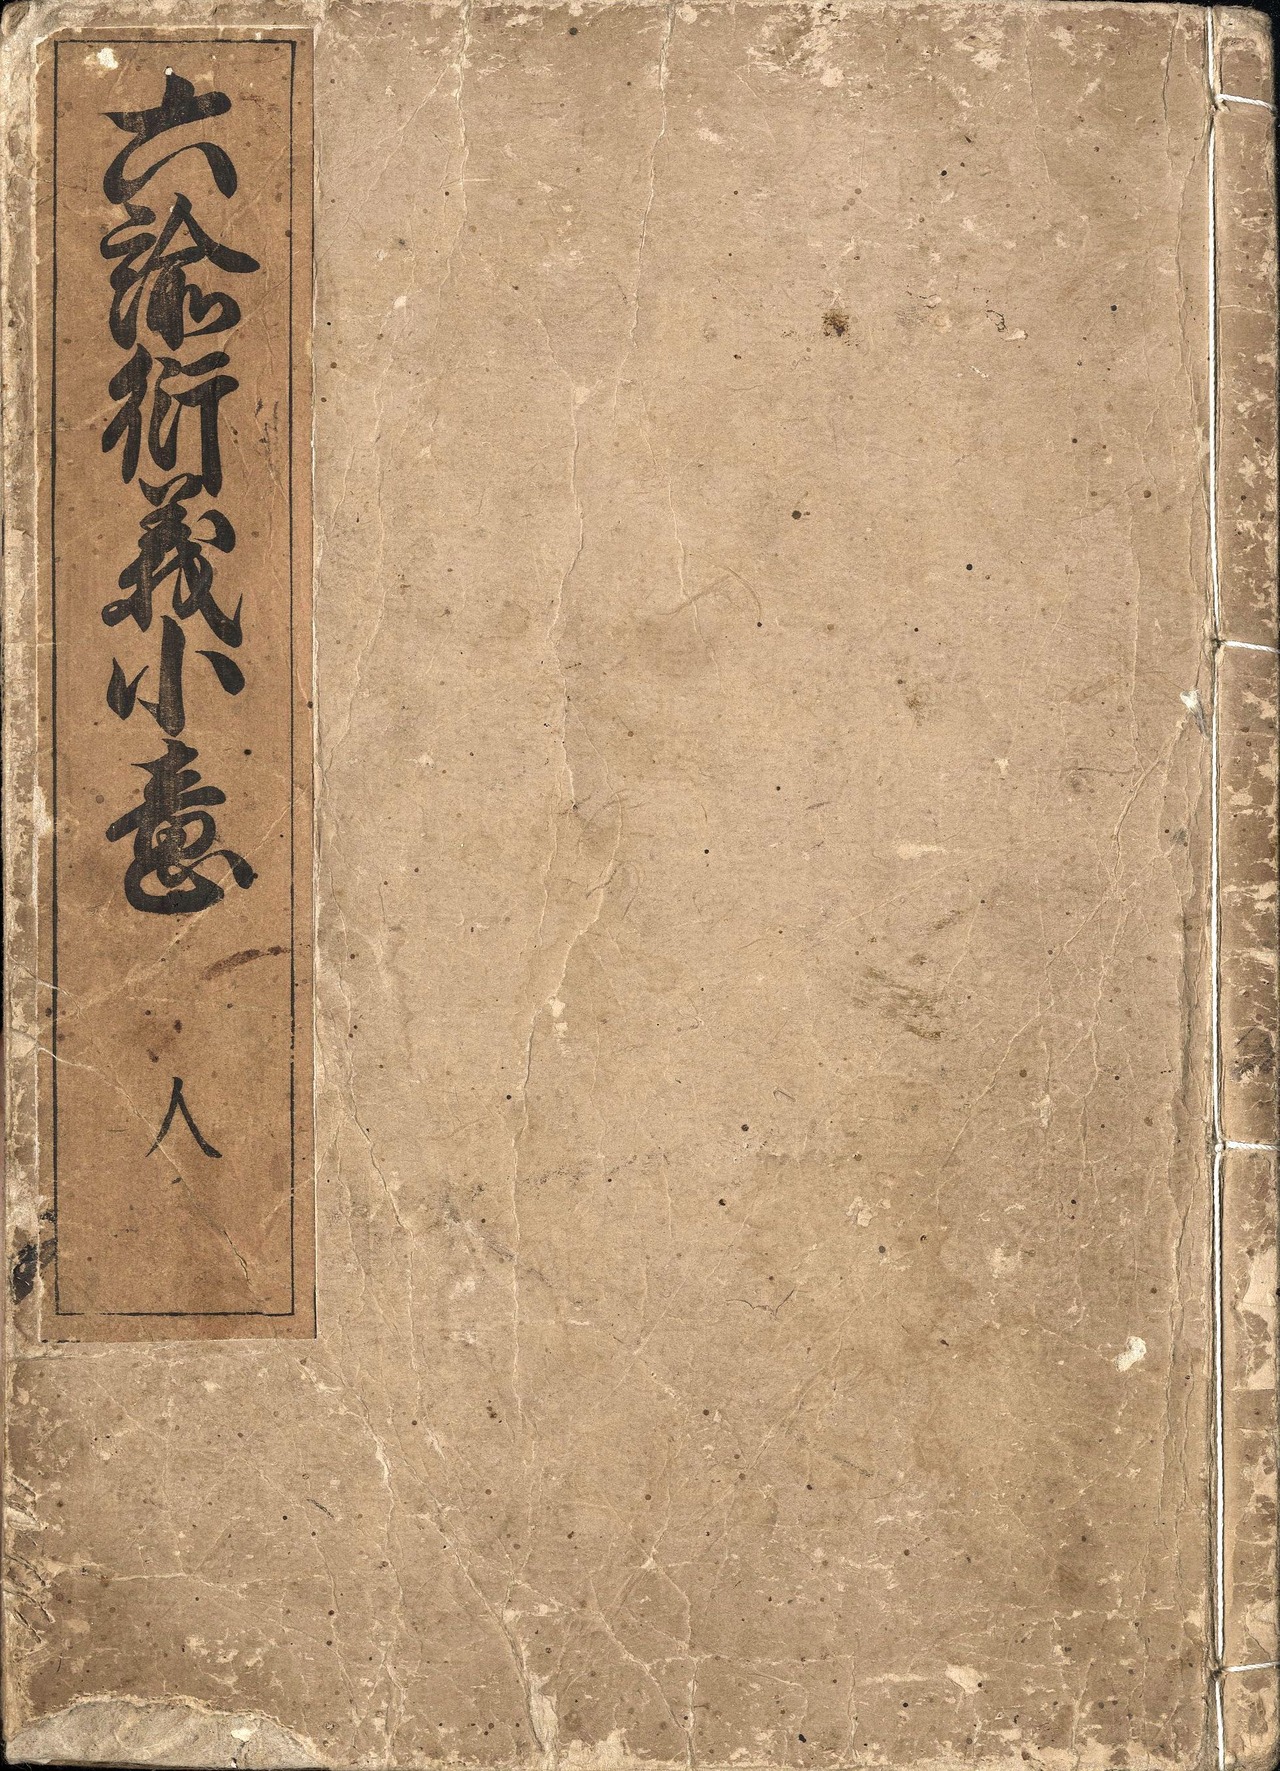 六諭衍義小意
人